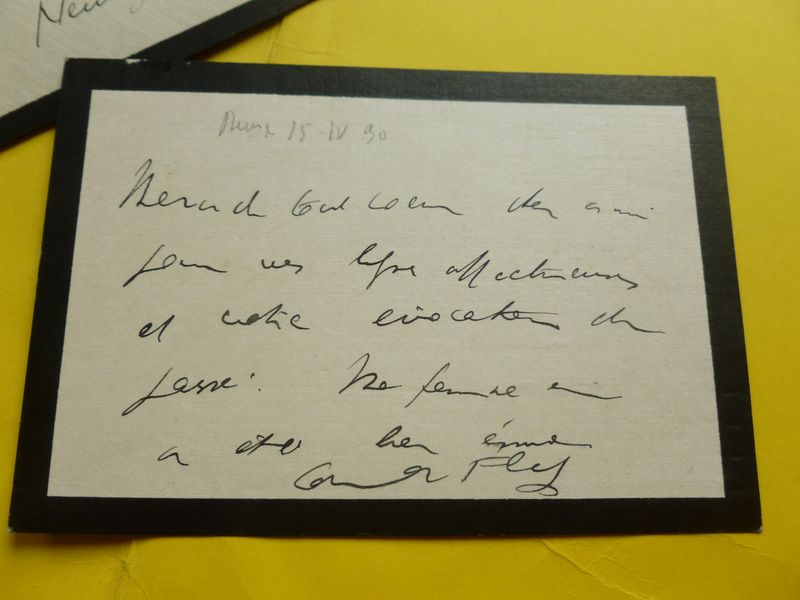 15-IV 90
Merci de tout coeur cher ami
pour vos lignes affectueuses
et votre évocation du
passé. Ma femme
a été bien émue